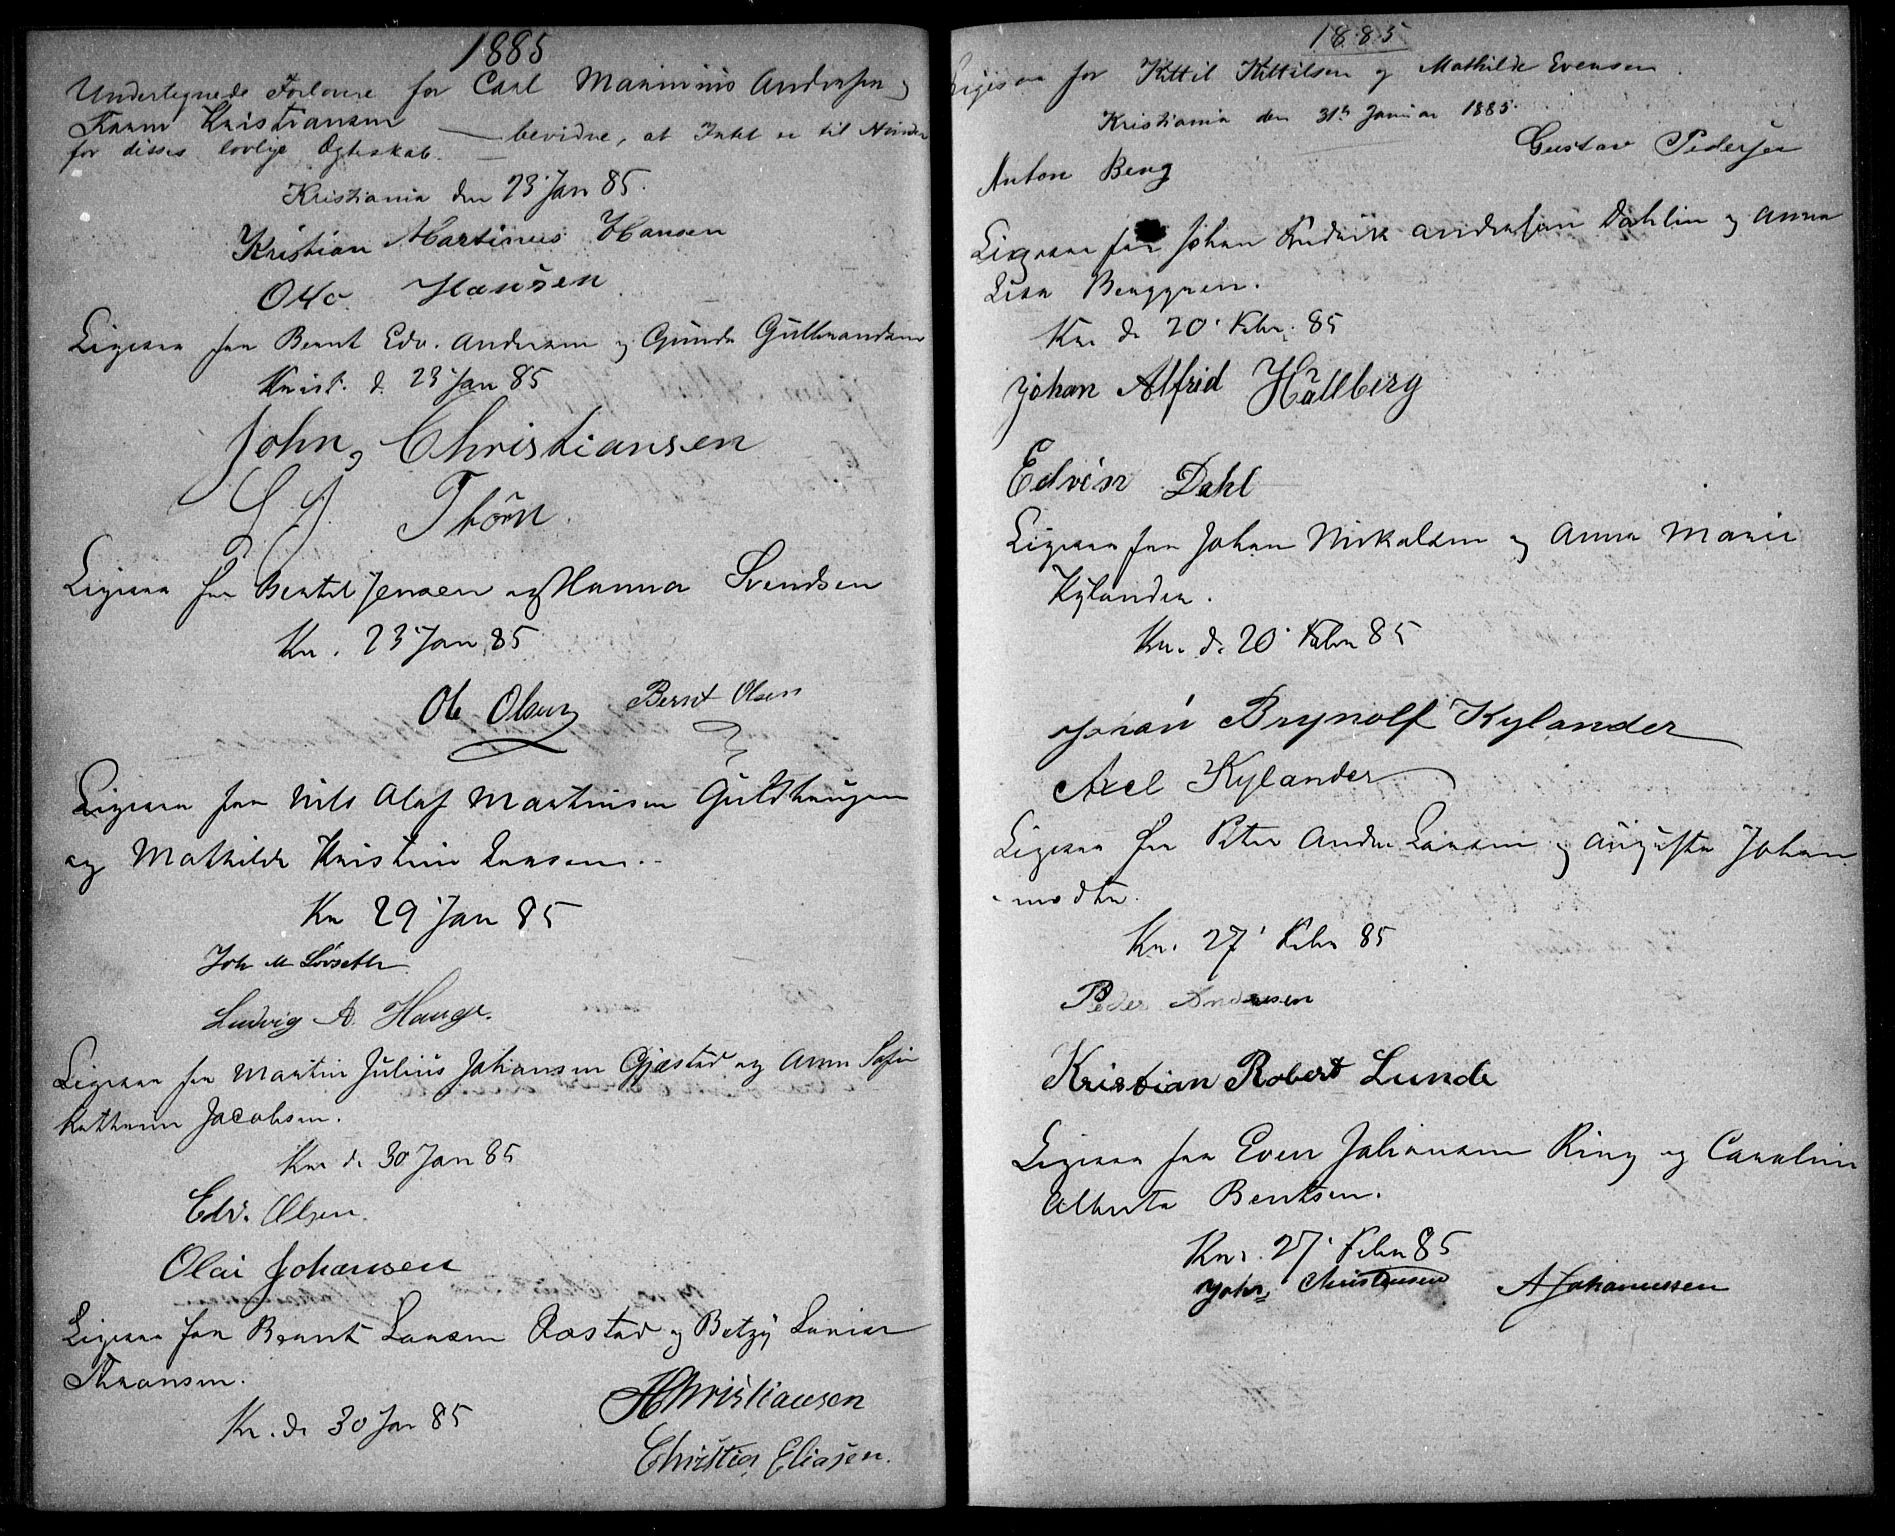 1885
Undertegnede Forlovere for Carl Marinius Andersen og
Karen Kristiansen
bevidne, at Intet er til Hinder
for disses lovlige Ægteskab.
Kristiania den 23 Jan 85.
Kristian Martinus Hansen
Otto Hansen
Ligesaa for Bernt Edv. Andersen og Gunda Gulbrandsen
Krist. d. 23 Jan 85
John Christiansen
Thörn
Ligesaa for Bertel Jensen og Hanna Svendsen
Kr. 23 Jan 85
Ole Olsen Bernt Olsen
Ligesaa for Nils Olaf Martinsen Guldhaugen
og Mathilde Kristine Larsen.
Kr 29 Jan 85
Joh M Sörseth
Ludvig A. Hauge.
Ligesaa for Martin Julius Johansen Gjæstad og Anna Sofie
Kathrine Jacobsen.
Kr. d. 30 Jan 85
Edv. Olsen.
Olai Johansen
Ligesaa for Bernt Larsen Aastad og Betzy Lovise
Thoransen.
Kr. d. 30 Jan 85
HChristiansen
Christia Eliasen.
1885
Ligesaa for Kittil Kittilsen og Mathilde Evensen.
Kristiania den 31te Januar 1885.
Gustav Pedersen
Anton Berg
Ligesaa for Johan Fredrik Andersson Dahlin og Anna
Lisa Berggren.
Kr. d. 20 Febr. 85
Johan Alfrid Hällberg
Edvin Dahl
Ligesaa for Johan Nikolsen og Anna Marie
Kylander.
Kr. d. 20 Febr 85
Johan Brynolf Kylander
Axel Kylander
Ligesaa for Peter Andr. Larsen og Augusta Johan-
nesdtr.
Kr. 27 Febr 85
Peder Andresen
Kristian Robert Lunde
Ligesaa for Even Johansen Ring og Caroline
Alberta Bentsen.
Kr. 27 Febr 85
John Christiansen A Johannessen